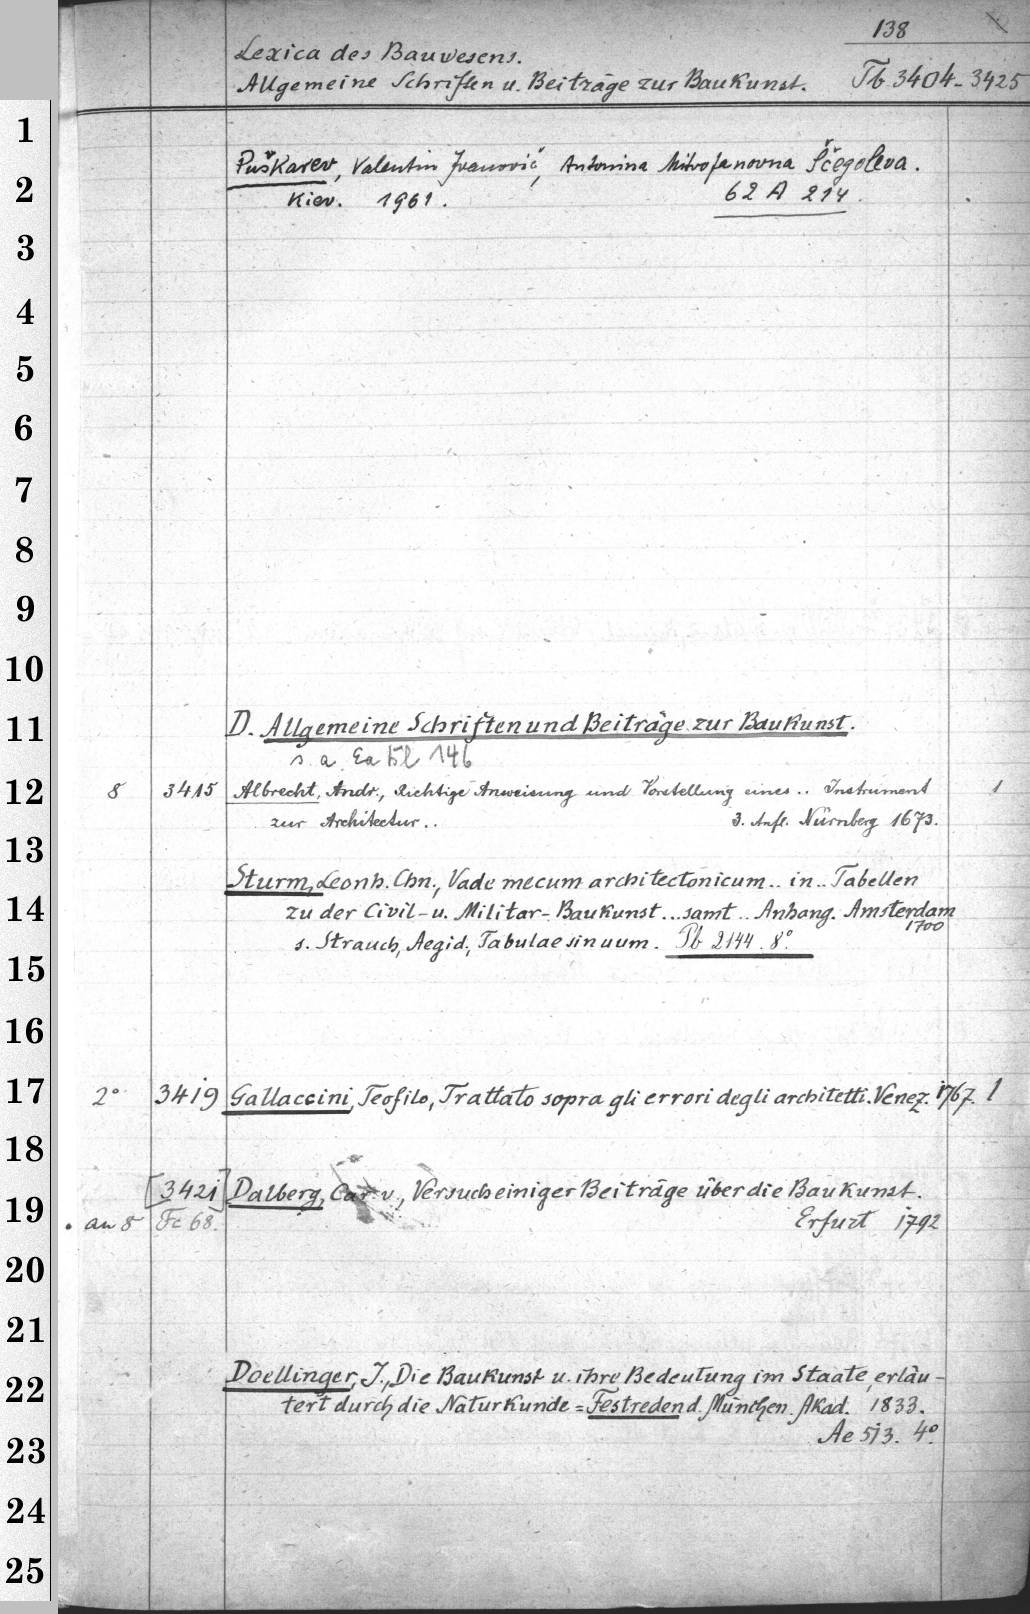 138
Lexica des Bauwesens.
Allgemeine Schriften u. Beiträge zur Baukunst. Tb 3404-3425
1
Puškarev, Valentin Ivanovič, Antonina Mitrofanovna Ščegoleva.
2
Kiev. 1961. 62 A 214.
3
4
5
6
7
8
9
10
11
D. Allgemeine Schriften und Beiträge zur Baukunst.
s. a. Ea Bl 146
12
8 3415 Albrecht, Andr., Richtige Anweisung und Vorstellung eines .. Instrument 1
zur Architectur.. 3. Aufl. Nürnberg 1673.
13
Sturm, Leonh. Chn., Vade mecum architectonicum.. in.. Tabellen
14
zu der Civil- u. Militar-Baukunst...samt.. Anhang. Amsterdam
1700
s. Strauch, Aegid., Tabulae sinuum. Pb 2144. 8°.
15
16
17
2° 3419 Gallaccini, Teofilo, Trattato sopra gli errori degli architetti. Venez. 1767. 1
18
[3421] Dalberg, Car v., Versuch einiger Beiträge über die Baukunst.
19
. an 8 Fc 68. Erfurt 1792
20
21
22
Doellinger, J., Die Baukunst u. ihre Bedeutung im Staate, erläu-
tert durch die Naturkunde = Festreden d. München. Akad. 1833.
23
Ae 513. 4°.
24
25